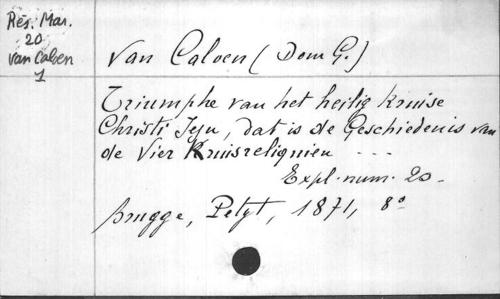 Rés. Mar.
20
Van Caloen
1
Van Caloen (Dom G.)
Triumphe van het heilig kruise
Christi Jesu, dat is de Geschiedenis van
de Vier Kruisreliquien ...
Expl. num. 20-
Brugge, Petyt, 1871, 8°